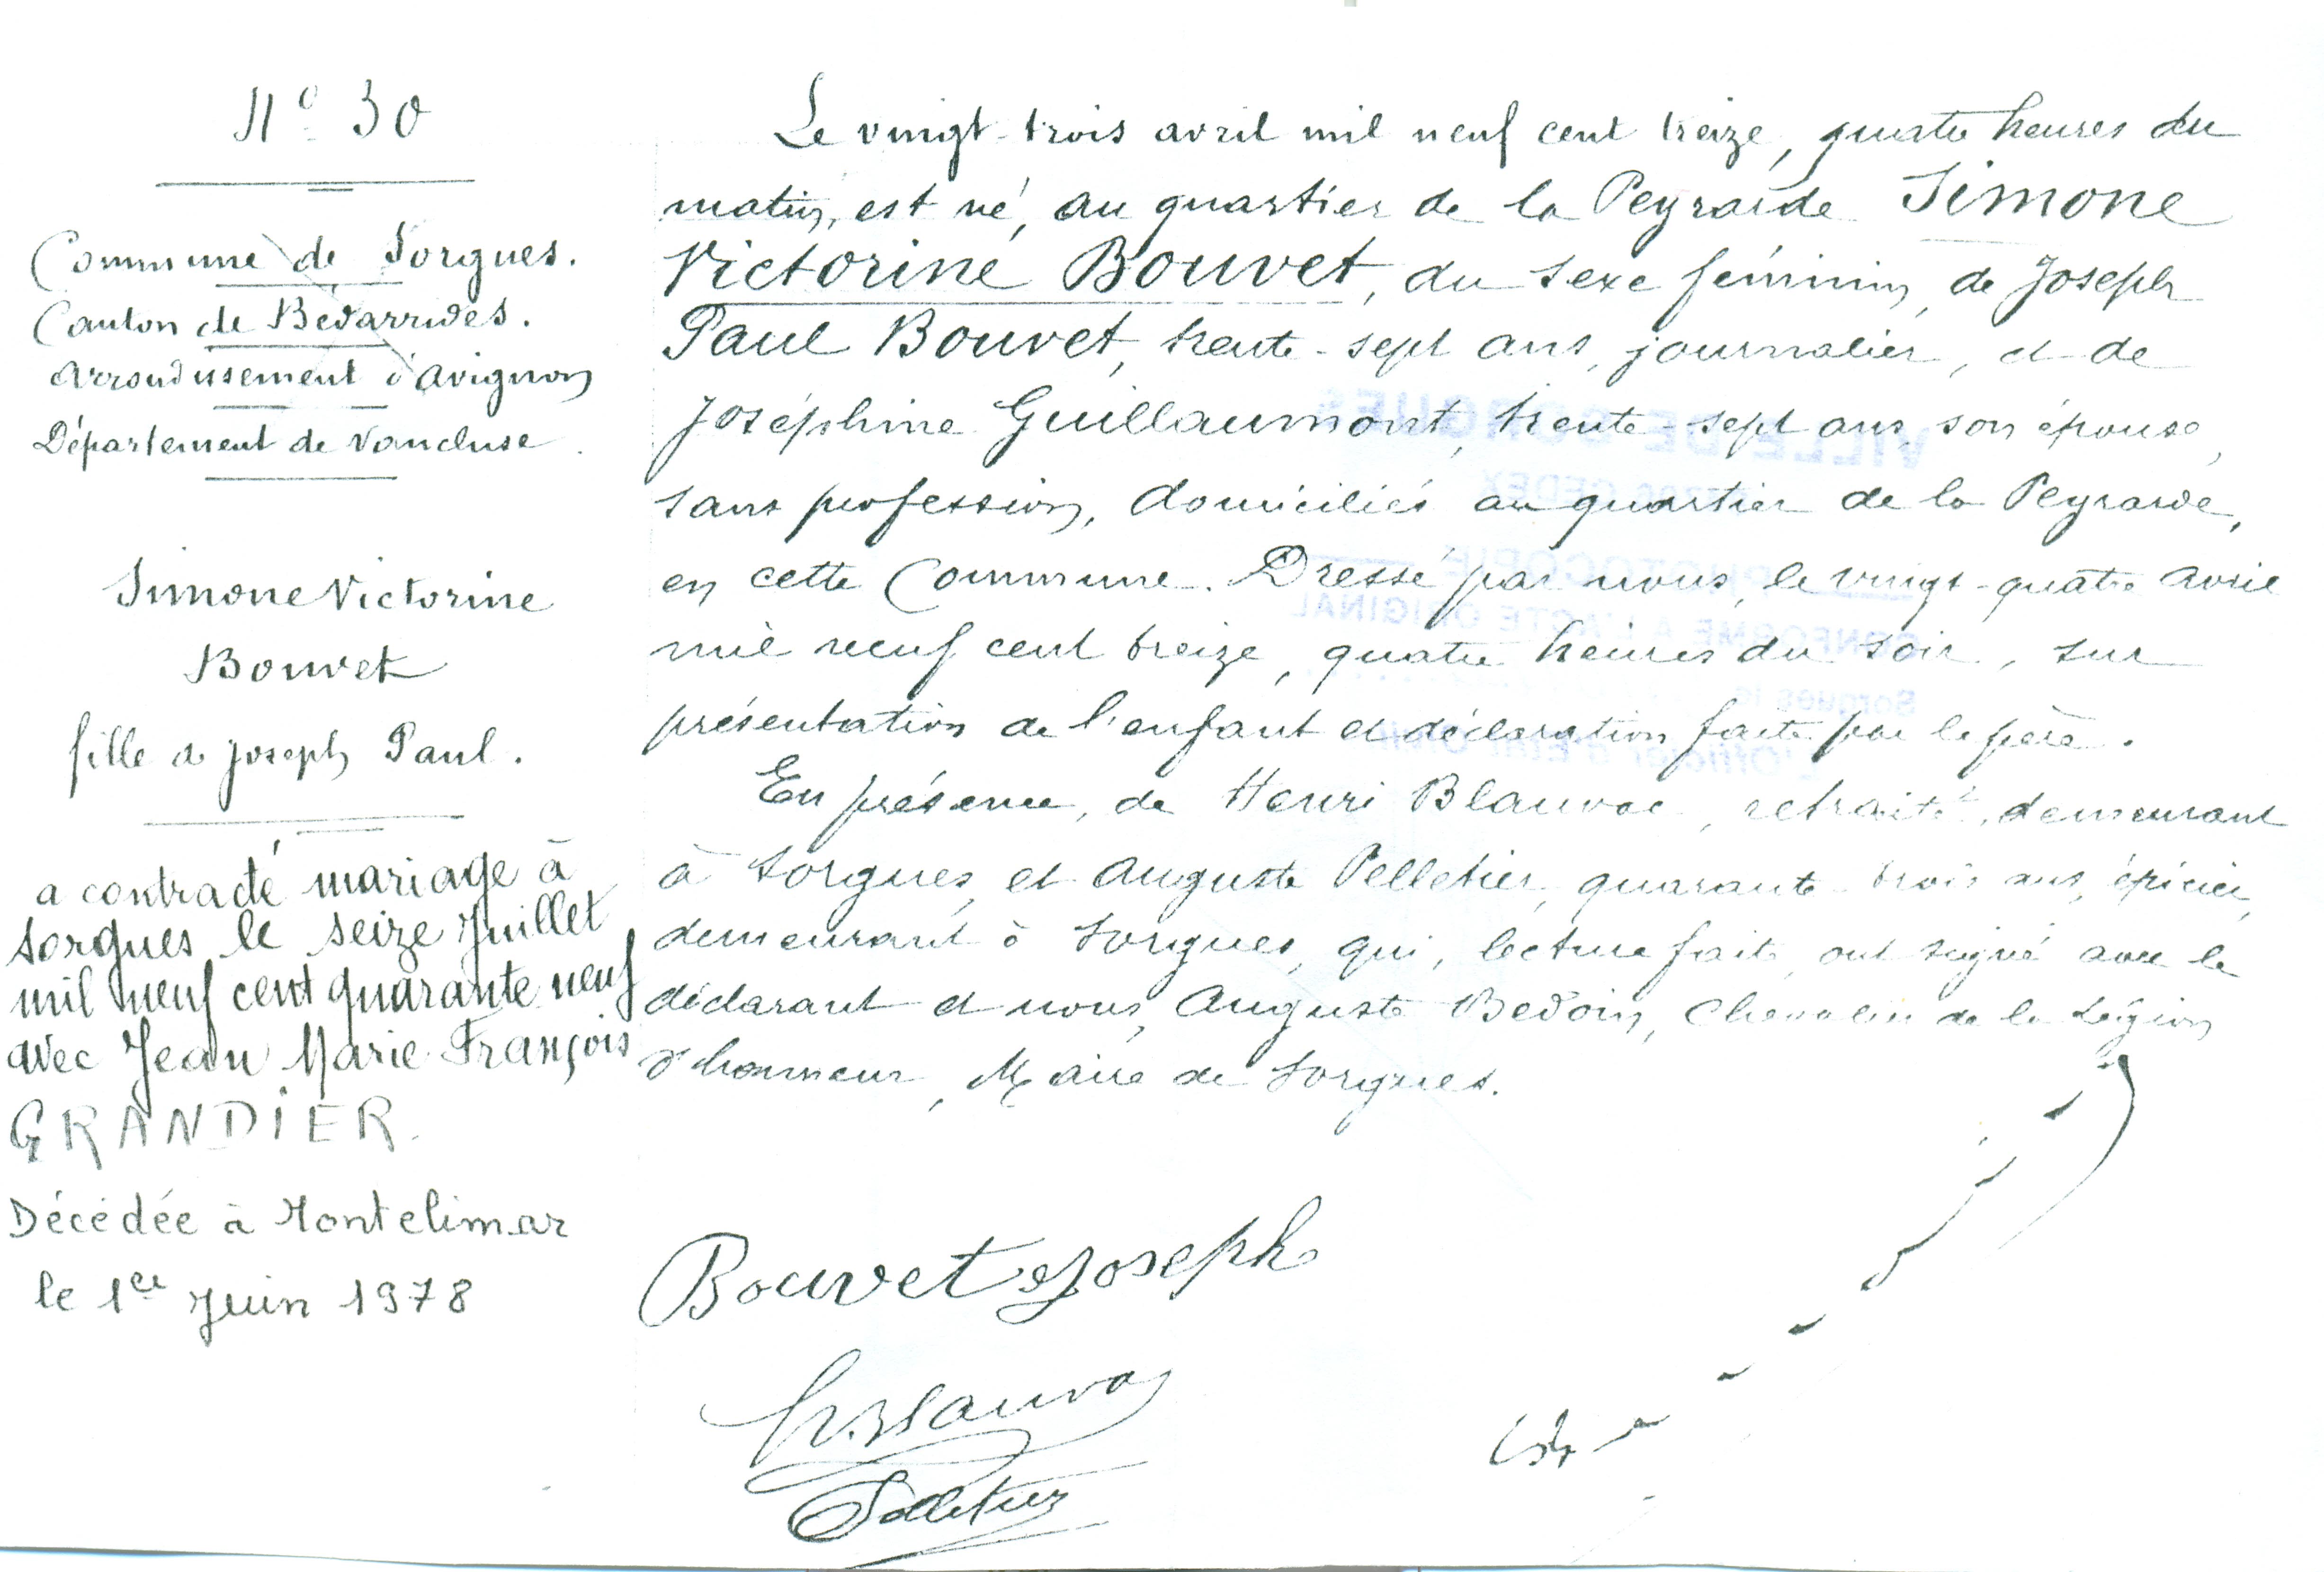 N° 30
Commune de Sorgues.
Canton de Bédarrides.
Arrondissement d'Avignon
Département de Vaucluse.
Simone Victorine
Bouvet
fille de Joseph Paul.
a contracté mariage à
Sorgues le seize Juillet
mil neuf cent quarante neuf
avec Jean Marie François
GRANDIER.
Décédée à Montelimar
le 1er Juin 1978
Le vingt-trois avril mil neuf cent treize, quatre heures du
matin, est né, au quartier de la Peyrarde Simone
Victorine Bouvet, du sexe féminin, de Joseph
Paul Bouvet, trente-sept ans, journalier, et de
Joséphine Guillaumont, trente-sept ans, son épouse,
sans profession, domiciliés au quartier de la Peyrarde,
en cette Commune. Dressé par nous, le vingt-quatre avril
mil neuf cent treize, quatre heures du soir, sur
présentation de l'enfant et déclaration faite par le père.
En présence, de Henri Blauvac, retraité, demeurant
à Sorgues, et Auguste Pelletier, quarante-trois ans, épicier,
demeurant à Sorgues, qui, lecture faite, ont signé avec le
déclarant et nous, Auguste Bédoin, Chevalier de la Légion
d'honneur, Maire de Sorgues.
VILLE DE SORGUES
CEDEX
PHOTOCOPIE
CONFORME A L'ACTE ORIGINAL
Sorgues le
L'Officier d'Etat Civil
Bouvet Joseph
H. Blauvac
Pelletier